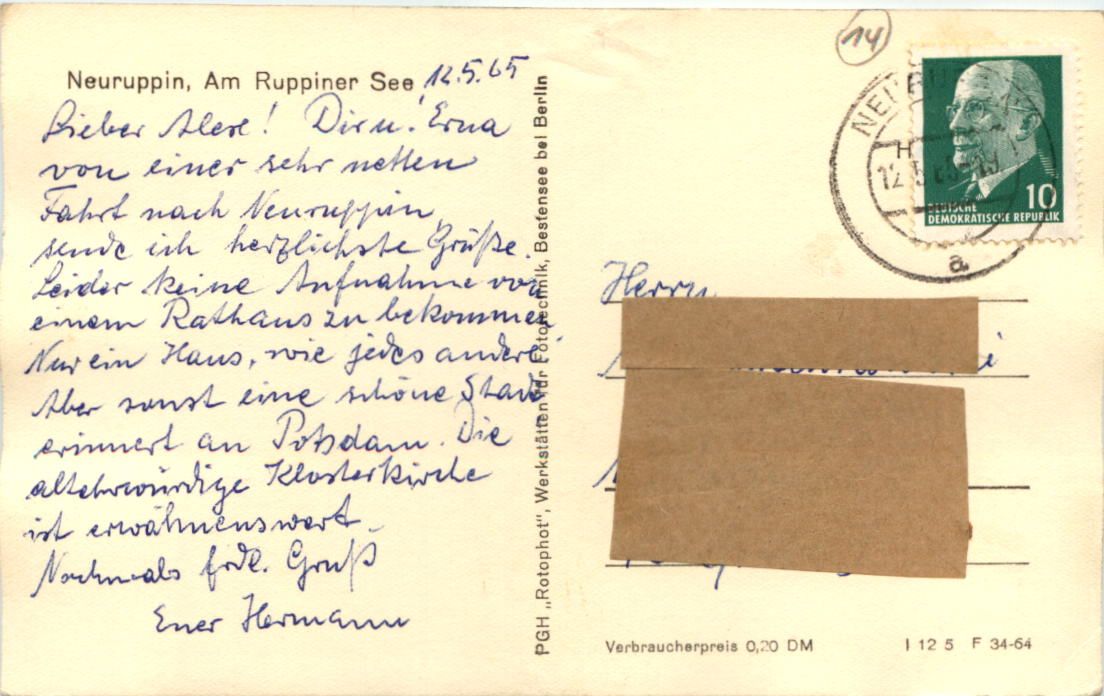 Neuruppin, Am Ruppiner See
12.5.65
Lieber Alex! Dir u. Erna
von einer sehr netten
Fahrt nach Neuruppin,
sende ich herzlichste Grüße.
Leider keine Aufnahme von
einem Rathaus zu bekommen
Nur ein Haus, wie jedes andere
Aber sonst eine schöne Stadt
erinnert an Potsdam. Die
altehrwürdige Klosterkirche
ist erwähnenswert.
Nochmals frdl. Gruß
Euer Hermann
PGH „Rotophot", Werkstätten für Fototechnik, Bestensee bei Berlin
14
12.5.65-19
a
10
DEUTSCHE
DEMOKRATISCHE REPUBLIK
Herrn
Verbraucherpreis 0,20 DM
I 12 5 F 34-64